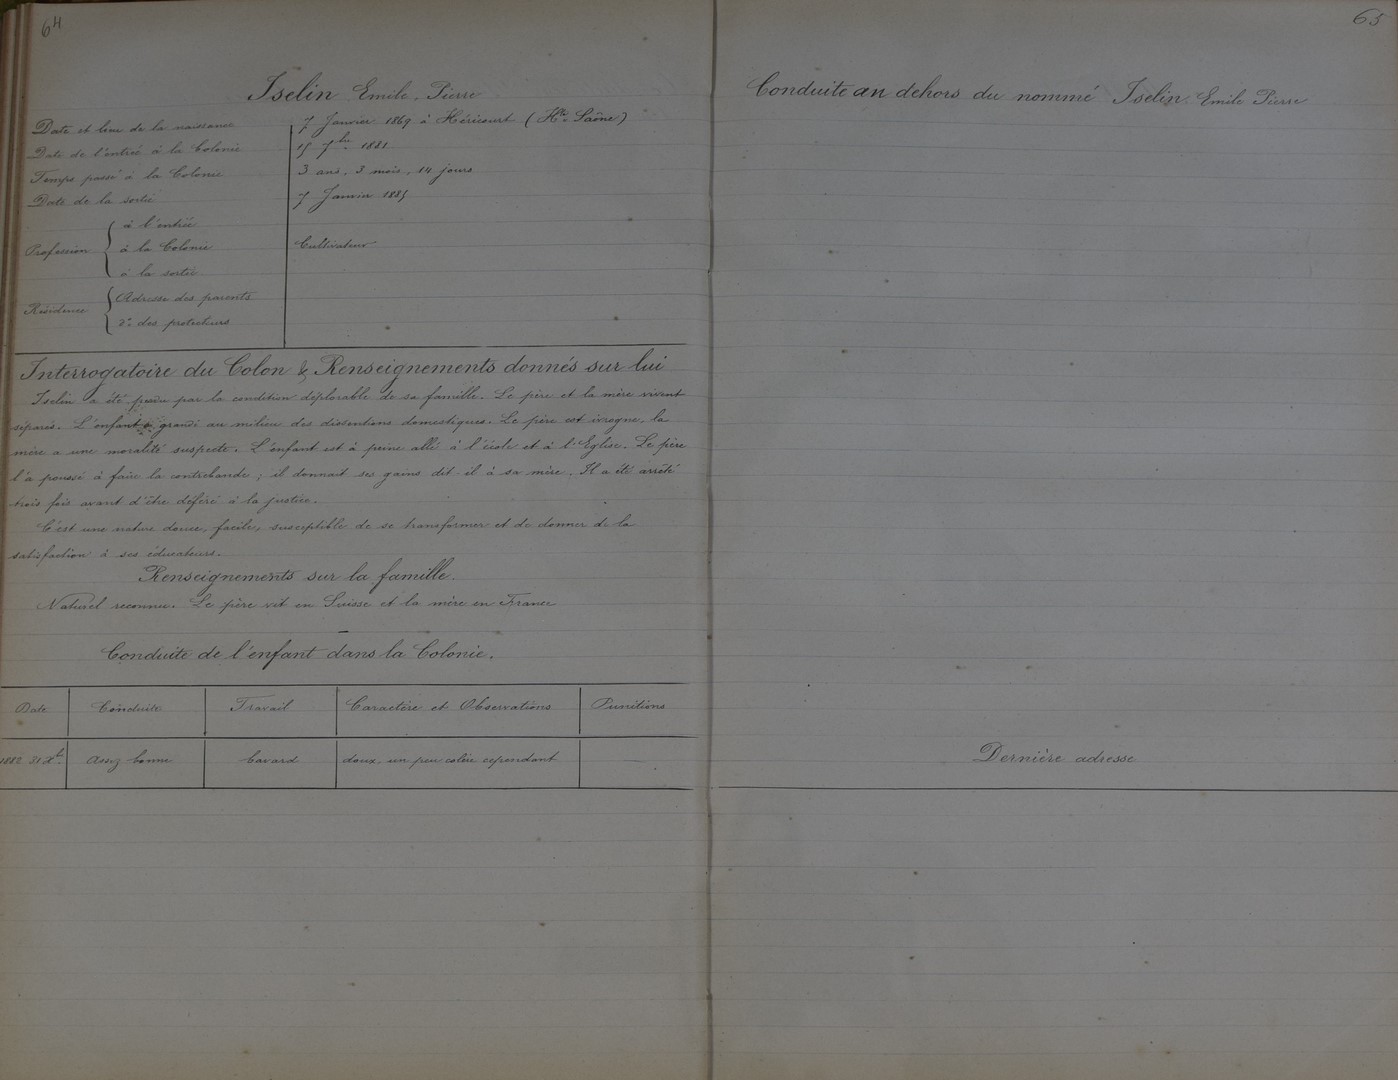 64
Iselin Emile, Pierre
Date et lieu de la naissance 7 Janvier 1869 à Héricourt (Hte Saône)
Date de l'entrée à la Colonie 15 7bre 1881
Temps passé à la Colonie 3 ans, 3 mois, 14 jours
Date de la sortie 7 Janvier 1885
Profession
à l'entrée
à la Colonie Cultivateur
à la sortie
Résidence
Adresse des parents
do des protecteurs
Interrogatoire du Colon & Renseignements donnés sur lui
Iselin a été perdu par la condition déplorable de sa famille. Le père et la mère vivent
séparés. L'enfant a grandi au milieu des dissentions domestiques. Le père est ivrogne, la
mère a une moralité suspecte. L'enfant est à peine allé à l'école et à l'Eglise. Le père
l'a poussé à faire la contrebande ; il donnait ses gains dit-il à sa mère. Il a été arrêté
trois fois avant d'être déféré à la justice.
C'est une nature douce, facile, susceptible de se transformer et de donner de la
satisfaction à ses éducateurs.
Renseignements sur la famille.
Naturel reconnu. Le père vit en Suisse et la mère en France
Conduite de l'enfant dans la Colonie.
Date Conduite Travail Caractère et Observations Punitions
1882 31 Xbre Assez bonne bavard doux, un peu colère cependant
65
Conduite au dehors du nommé Iselin Emile Pierre
Dernière adresse